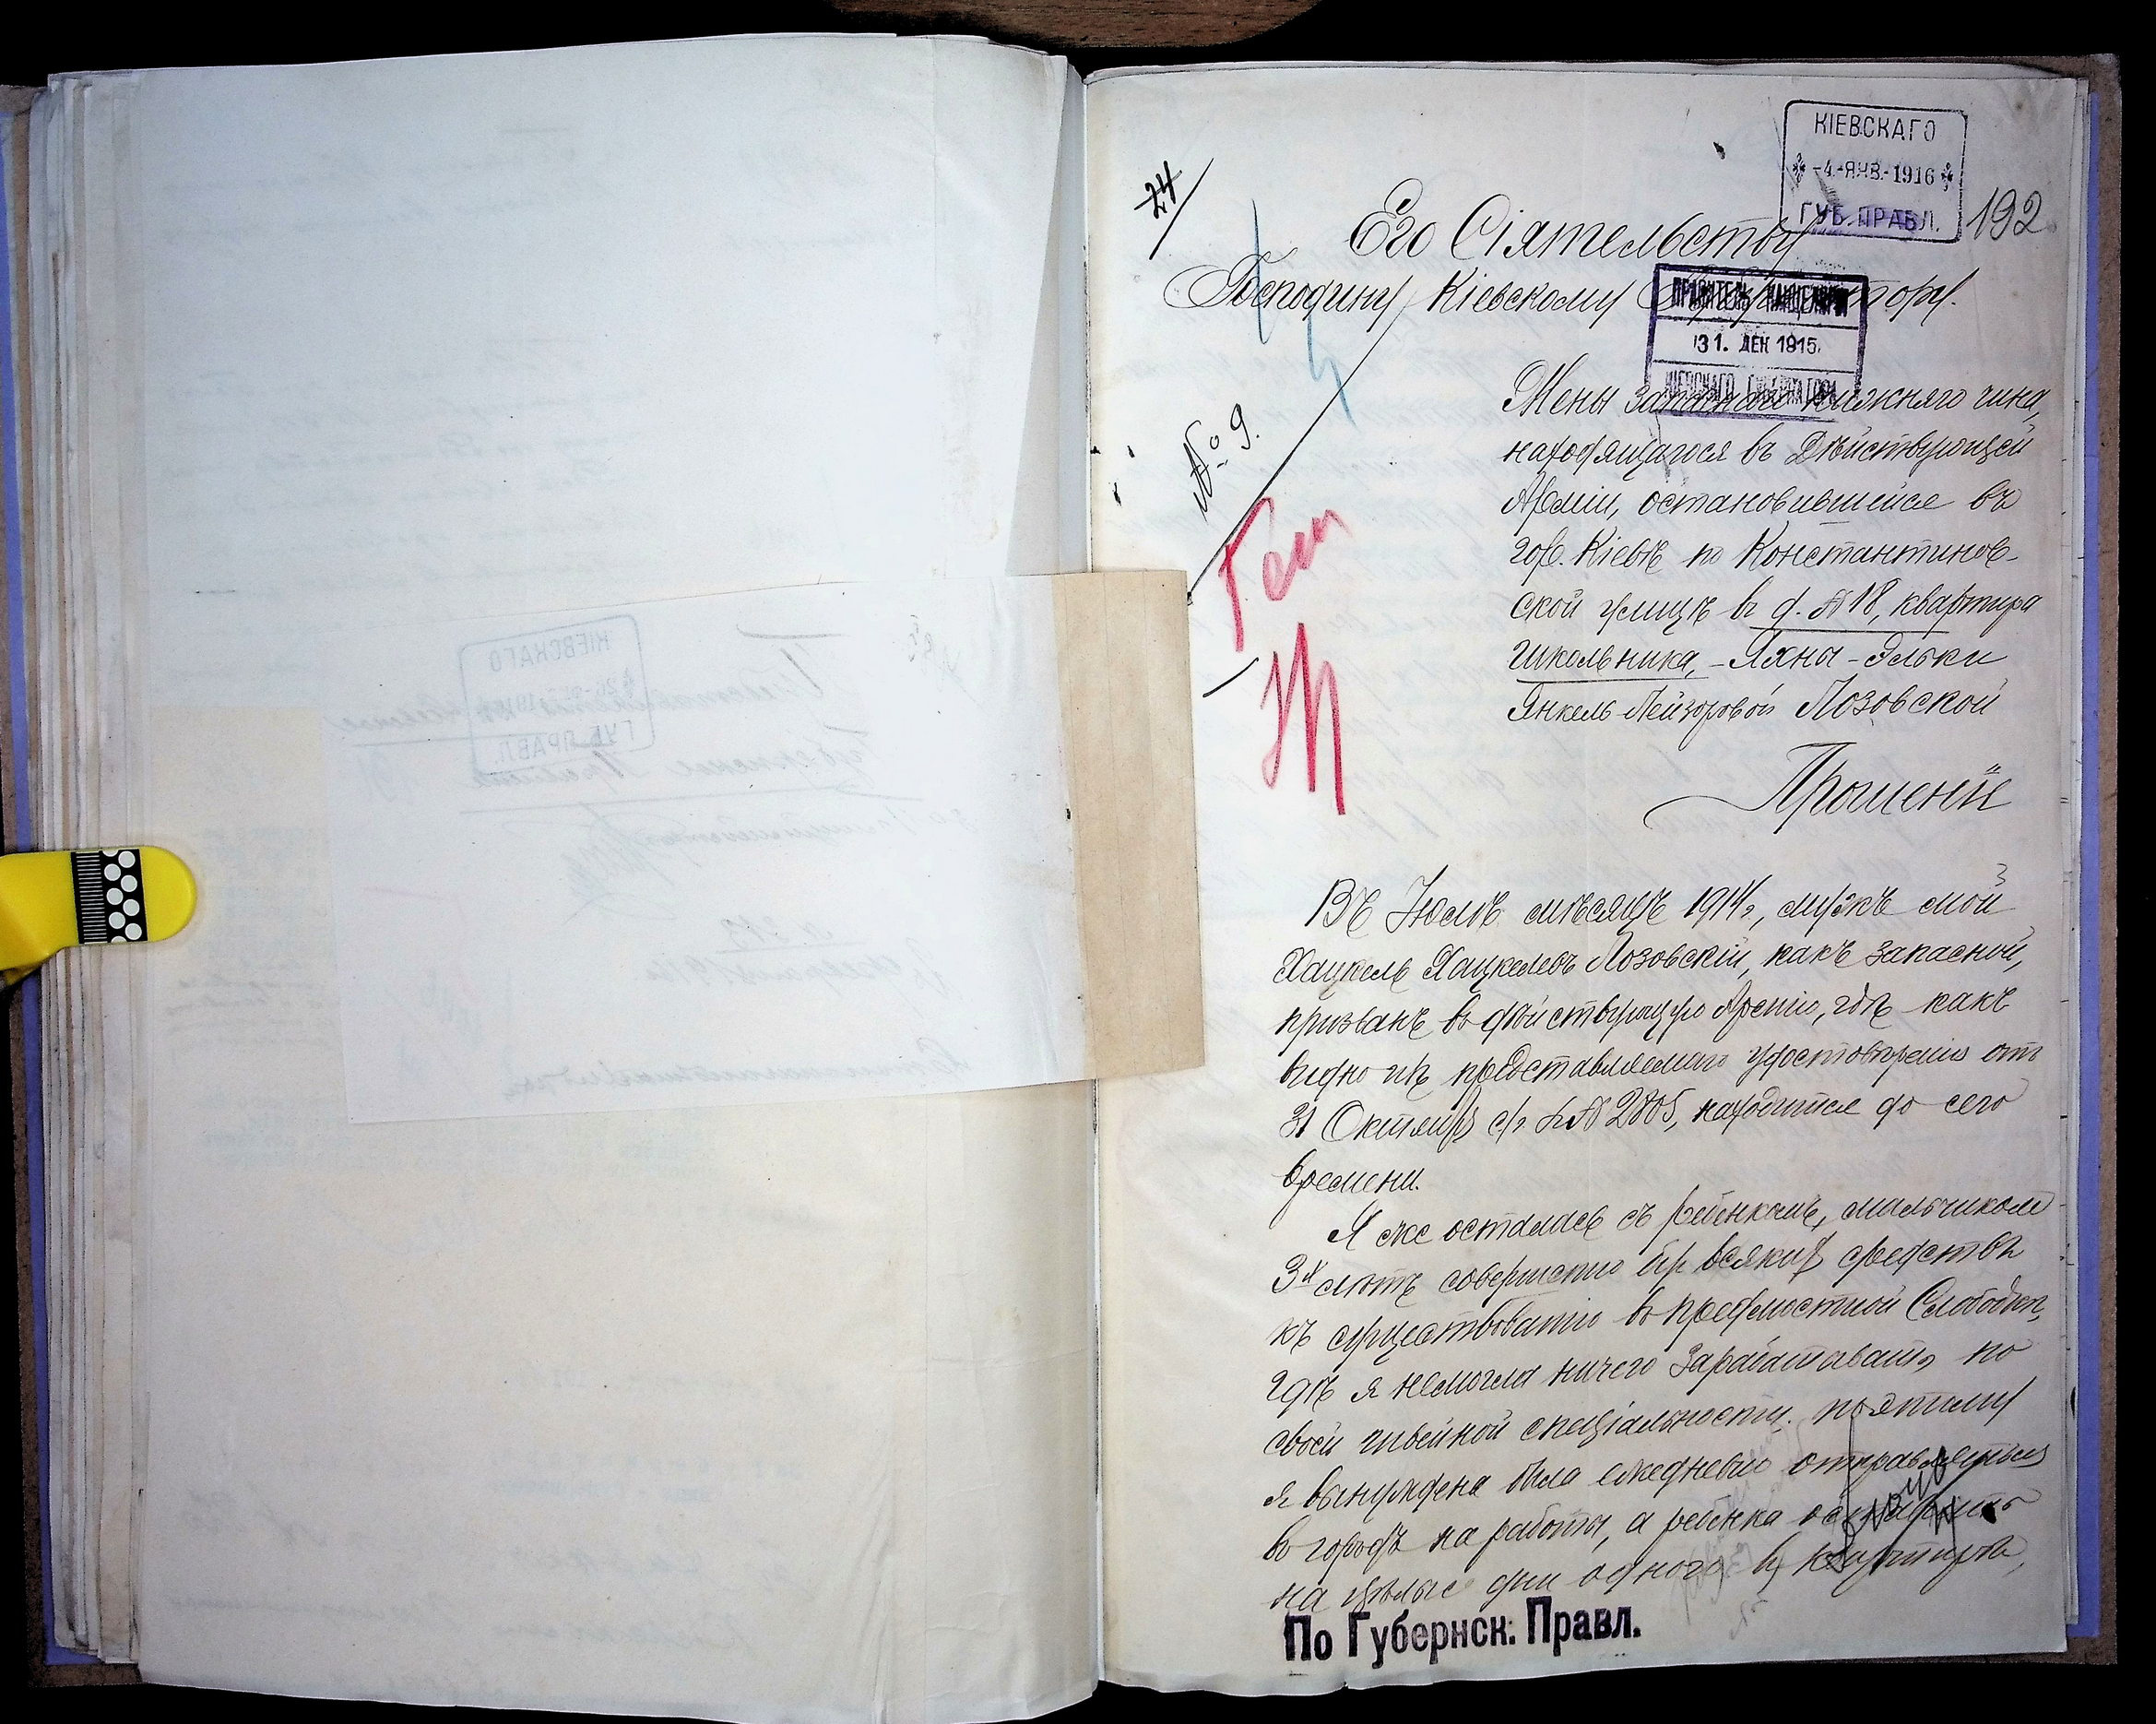 КІЕВСКАГО
-4.-ЯНВ.-1916
ГУБ. ПРАВЛ.
192
24
Его Сіятельству
Господину Кіевскому Губернатору.
ПРАВИТЕЛЬ КАНЦЕЛЯРІИ
31. ДЕК 1915
КІЕВСКАГО ГУБЕРНАТОРА
№ 9.
Жены запаснаго нижняго чина,
находящагося въ Дѣйствующей
Арміи, остановившейся въ
гор. Кіевѣ по Константинов-
ской улицѣ въ д. №18, квартира
Школьника, - Яхны - Эльки
Янкель-Лейзоровой Лозовской
Прошеніе
Въ Іюлѣ мѣсяцѣ 1914 г., мужъ мой
Хацкель Хацкелевъ Лозовскій, какъ запасной,
призванъ въ дѣйствующую Армію, гдѣ какъ
видно изъ представляемаго удостовѣренія отъ
31 Октября с/г за № 2805, находится до сего
времени.
Я же осталась съ ребенкомъ, мальчикомъ
3х лѣтъ совершенно безъ всякихъ средствъ
къ существованію въ предмостной Слободкѣ,
гдѣ я не могла ничего зарабатывать по
своей швейной спеціальности. поэтому
я вынуждена была ежедневно отправляться
въ городъ на работы, а ребенка оставлять
на цѣлые дни одного въ квартирѣ,
По Губернск: Правл.